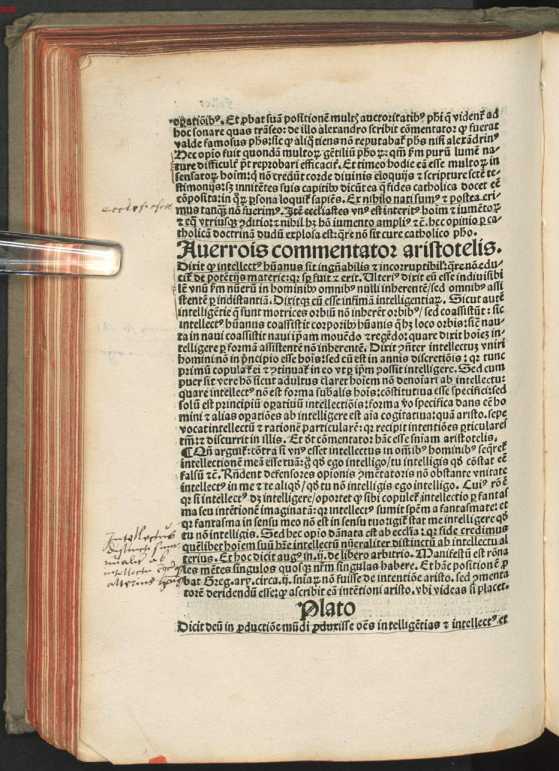 oꝑatiōibꝰ. Et ꝓbat suā positionē multꝭ auctoritatibꝰ phi q̄ vident̄ ad
hoc sonare quas trāseo: de illo alexandro scribit cōmentator ꝙ fuerat
valde famosus phs: sic ꝙ aliq̄ tiens nō reputabat̄ phs nisi alexādrinꝰ
Hec opio fuit quondā multoꝝ gētiliū pho ꝝ: qm̄ fm purū lumē na-
ture difficulť pt̄ reprobari efficacit̄. Et rimeo hodie eā esse multoꝝ in
sensatoꝝ hoim: q̄ nō credūt corde diuinis eloquijs ⁊ scripture scē te-
stimonijs: sꝫ innitētes suis capitibꝰ dicūt ea q̄ fides catholica docet eē
cōposita: in qꝝ ꝑsona loquit̄ sapiēs. Ex nihilo nati sumꝰ ⁊ postea eri-
mus tanqꝫ nō fuerimꝰ. Itē ecclesiastes vnꝰ est interitꝰ hoim ⁊ iumētoꝝ
⁊ eq̄ vtriusqꝫ ꝯditio: ⁊ nihil hꝫ hō iumento ampliꝰ ⁊c̄. hec opinio ꝑ ca-
tholicā doctrinā dudū explosa est: q̄re nō sit cure catholico pho.
Auerrois commentator aristotelis.
Dixit ꝙ intellectꝰ hūanus sit ingn̄abilis ⁊ incorruptibil: q̄re nō edu-
cit̄ de potētijs materie: qꝛ sꝑ fuit ⁊ erit. Ulteriꝰ dixit eū esse indiuisibi
lē vnū fm nūerū in hominibꝰ omnibꝰ nulli inherentē/ sed omnibꝰ assi
stentē ꝑ indistantiā. Dixitqꝫ eū esse infimā intelligentiaꝝ. Sicut autē
intelligētie q̄ sunt motrices orbiū nō inherēt orbibꝰ/ sed coassistūt: sic
intellectꝰ hūanus coassistit corporibꝰ hūanis q̄ hꝫ loco orbis: sic nau-
ta in naui coassistit naui ip̄am mouēdo ⁊ regēdo: quare dixit hoīes in-
telligere ꝑ formā assistentē nō inherentē. Dixit ꝯnter intellectuꝫ vniri
homini nō in ṗncipio esse hois: sed cū est in annis discretiōis: qꝛ tunc
primū copulat̄ ei ⁊ ꝯtinuat̄ in eo vt ꝑ ip̄m possit intelligere. Sed cum
puer sit vere hō sicut adultus claret hoiem nō denoiari ab intellectu:
quare intellectꝰ nō est forma sub̄alis hois: cōstitutiua esse specifici: sed
solū est principiū oꝑatiuū intellectiōis: forma ṽo specifica dans eē ho
mini ⁊ alias oꝑatiōes ab intelligere est aīa cogitatiua: quā aristo. sepe
vocat intellectū ⁊ rationē particularē: qꝛ recipit intentiōes ꝑticulares
tm̄: ⁊ discurrit in illis. Et ōt cōmentator hāc esse sniam aristotelis.
¶ Qn̄ arguit̄: cōtra si vnꝰ esset intellectus in om̄ibꝰ hominibꝰ seq̄ret̄
intellectionē meā esse tuā: ꝫ qð ego intelligo/ tu intelligis qð cōstat eē
falsū ⁊c̄. Rn̄dent defensores opionis ꝯmētatoris nō obstante vnitate
intellectꝰ in me ⁊ te aliqð/ qð tu nō intelligis ego intelligo. Cuiꝰ rō ē
qꝛ si intellectꝰ dꝫ intelligere/ oportet ꝙ sibi copulet̄ intellectio ꝑ fantas
ma seu intētionē imaginatā: qꝛ intellectꝰ sumit sp̄em a fantasmate: et
qꝛ fantasma in sensu meo nō est in sensu tuo: igit̄ stat me intelligere qð
tu nō intelligis. Sed hec opio dānata est ab ecclia: qꝛ fide credimus
quēlibet hoiem suū h̄re intellectū nūeraliter distinctū ab intellectu al
terius. Et hoc dicit augꝰ in. ij. de libero arbitrio. Manifestū est rōna
les mētes singulos quosqꝫ nrm̄ singulas habere. Et hāc positionē ꝓ
bat Greg. ary. circa. ij. sniaꝝ nō fuisse de intentiōe aristo. sed ꝯmenta
torē deridendū esse: ꝙ ascribit eā intētioni aristo. vbi videas si placet.
Plato
Dicit deū in ꝓductiōe mūdi ꝓduxisse oēs intelligētias ⁊ intellectꝰ. et